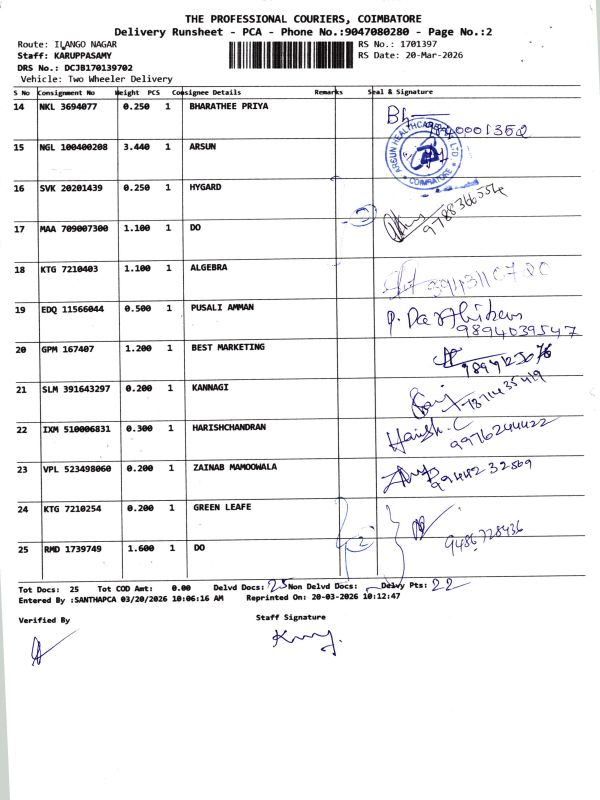 THE PROFESSIONAL COURIERS, COIMBATORE
Delivery Runsheet - PCA - Phone No.:9047080280 - Page No.:2
Route: ILANGO NAGAR RS No.: 1701397
Staff: KARUPPASAMY RS Date: 20-Mar-2026
DRS No.: DCJB170139702
Vehicle: Two Wheeler Delivery
S No Consignment No Weight PCS Consignee Details Remarks Seal & Signature
14 NKL 3694077 0.250 1 BHARATHEE PRIYA
15 NGL 100400208 3.440 1 ARSUN
16 SVK 20201439 0.250 1 HYGARD 9788366554
17 MAA 709007300 1.100 1 DO
18 KTG 7210403 1.100 1 ALGEBRA
19 EDQ 11566044 0.500 1 PUSALI AMMAN 9894039547
20 GPM 167407 1.200 1 BEST MARKETING
21 SLM 391643297 0.200 1 KANNAGI
22 IXM 510006831 0.300 1 HARISHCHANDRAN Harish.C 9976244422
23 VPL 523498060 0.200 1 ZAINAB MAMOOWALA 9444232569
24 KTG 7210254 0.200 1 GREEN LEAFE 2 9486728436
25 RMD 1739749 1.600 1 DO
Tot Docs: 25 Tot COD Amt: 0.00 Delvd Docs: 25 Non Delvd Docs: Delvy Pts: 22
Entered By :SANTHAPCA 03/20/2026 10:06:16 AM Reprinted On: 20-03-2026 10:12:47
Verified By Staff Signature